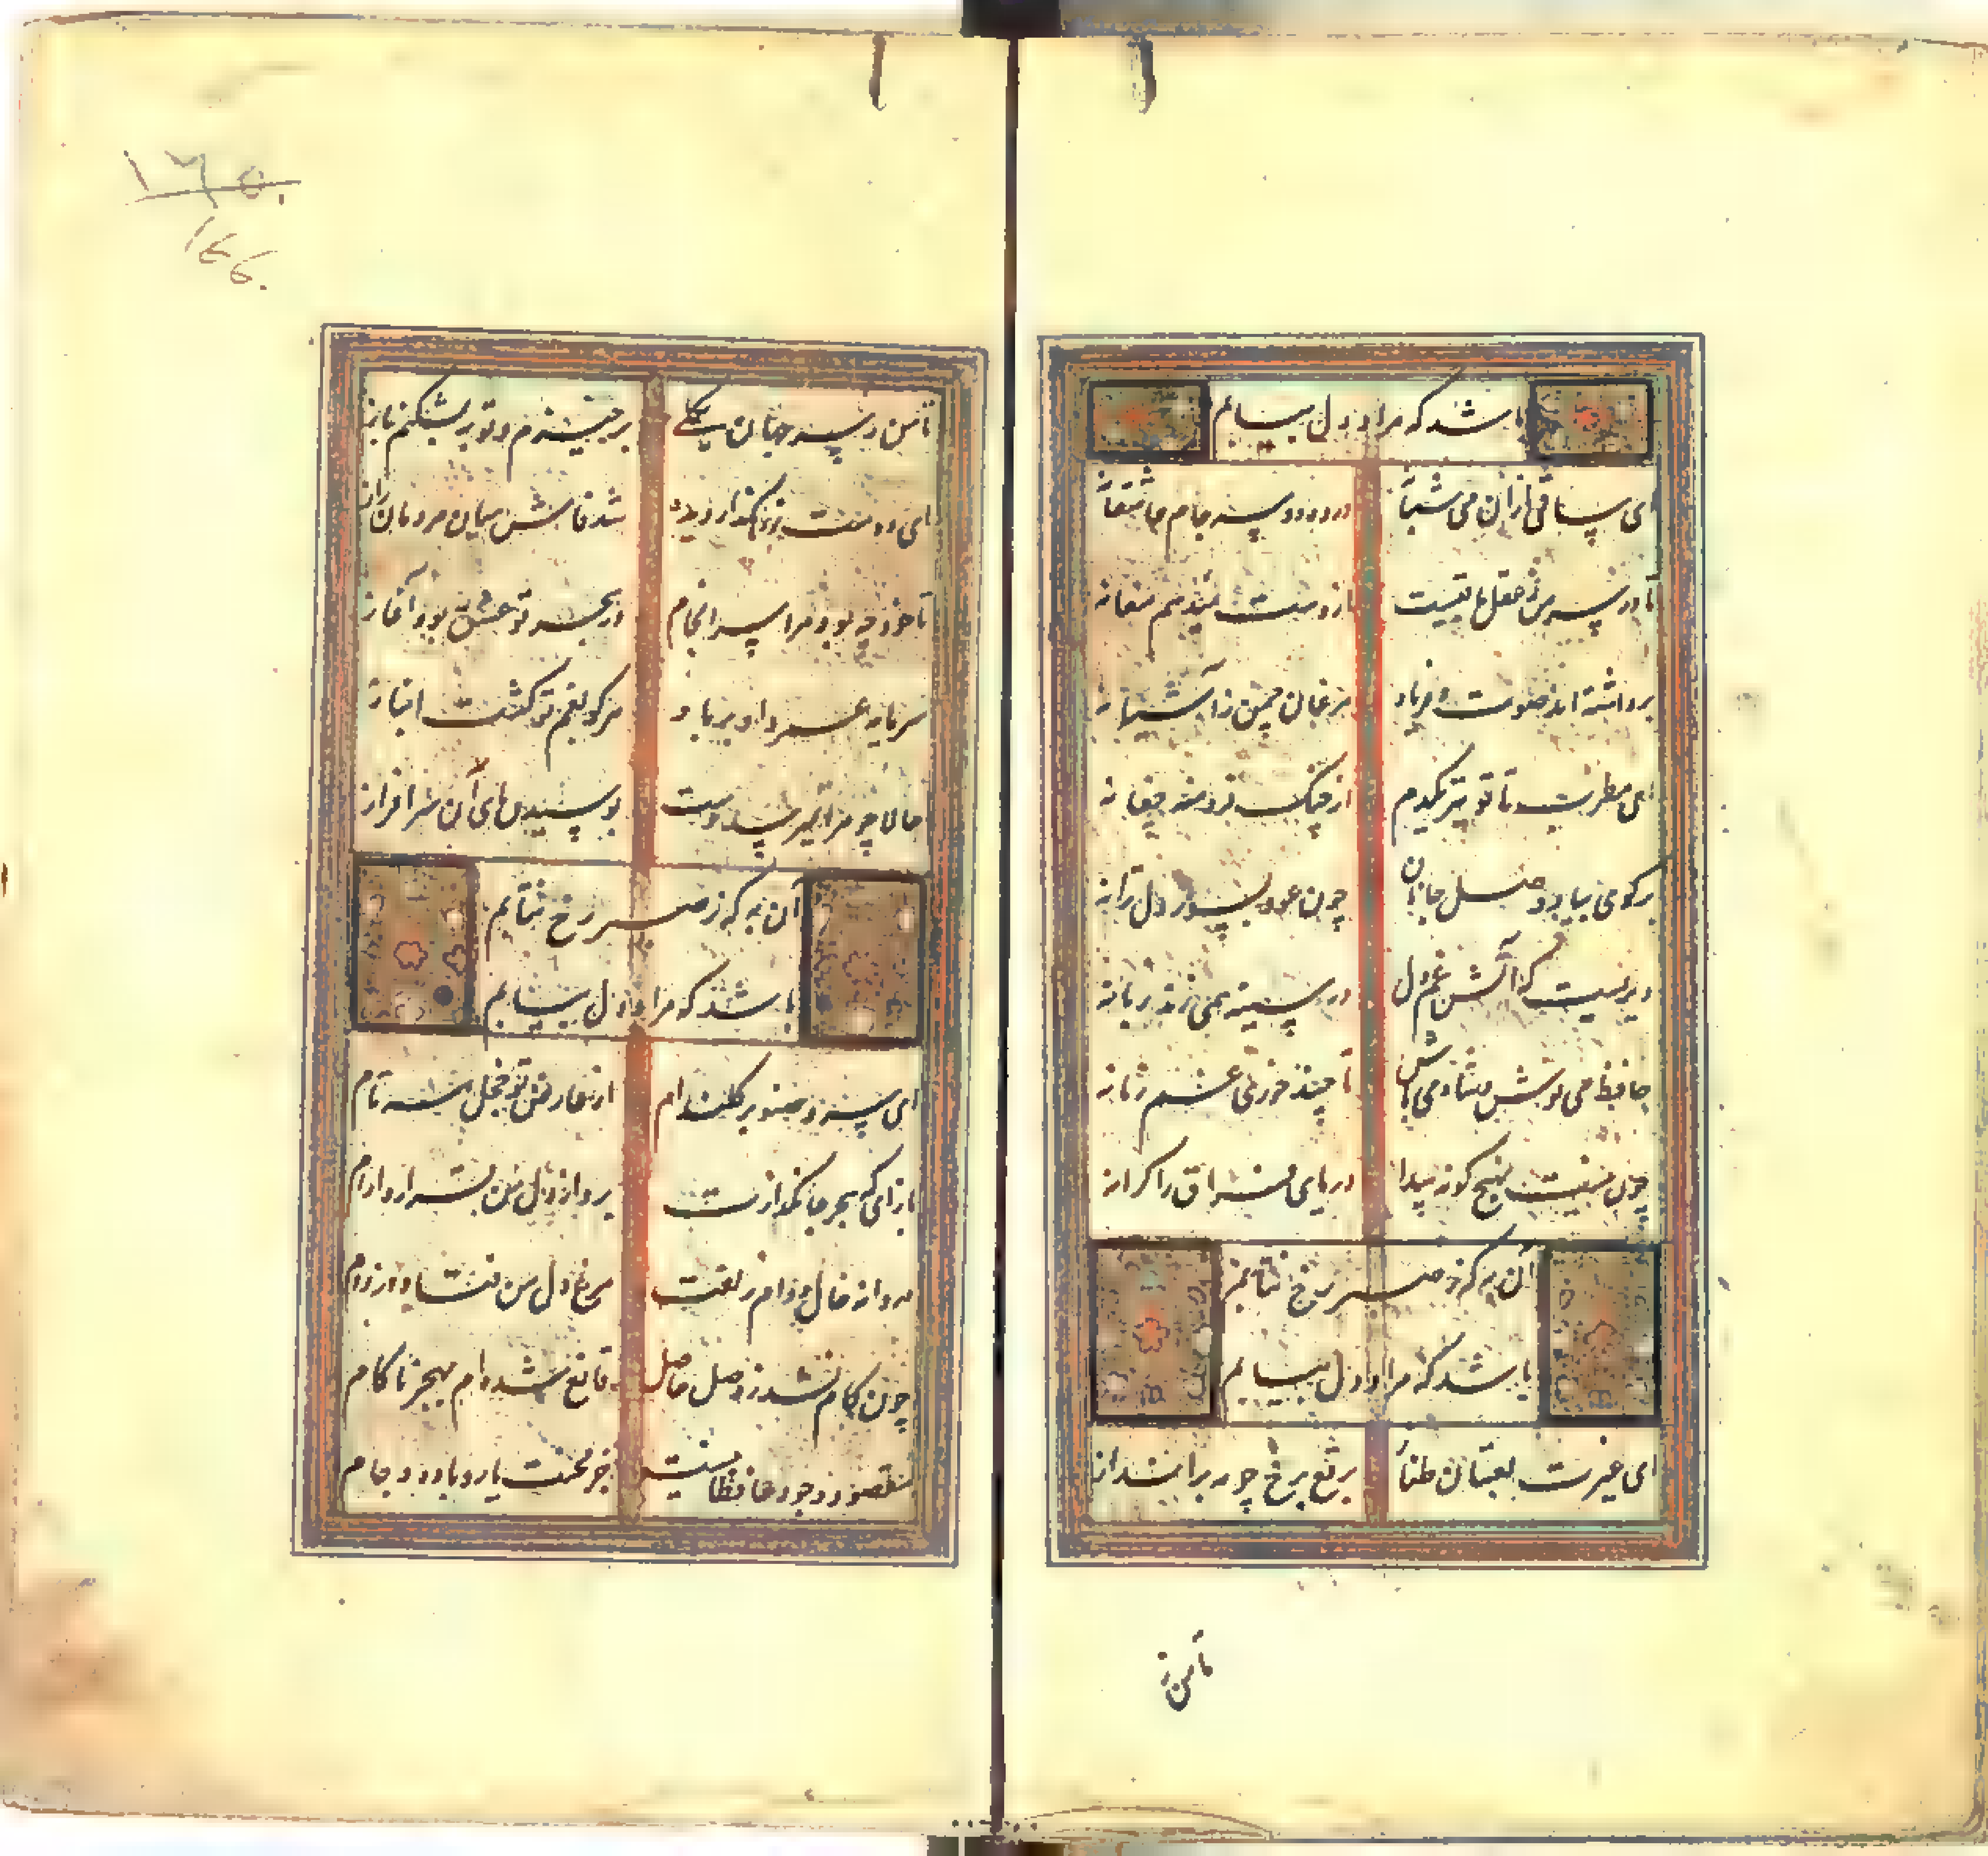 باشد که مراد دل بیابم
ای ساقی از آن می شبانه در ده دو سه جام عاشقانه
تا در سر من ز عقل باقیست از دست مده می مغانه
برداشته اند صوت و فریاد مرغان چمن ز آشیانه
ای مطرب تا تو یکدم از چنگ فرو منه چغانه
بر گوی بیاد وصل جانان چون عود بسوز دل ترانه
دیریست که آتش غم دل در سینه همی زند زبانه
حافظ می نوش شاد می باش تا چند خوری غم زمانه
چون نیست بهیچ گونه پیدا دریای فراق را کرانه
آن به که ز صبر رخ نتابم
باشد که مراد دل بیابم
ای غیرت لعبتان طناز برقع ز رخ چو مه برانداز
تا من ز
۱۶۵
166
تا من ز سر جهان بیکی برخیزم و توبه بشکنم باز
ای دوست دیده شد فاش میان مردمان راز
تا خود چه بود مرا سرانجام در هجر تو عشق بود آغاز
سرمایه عمر داد بر باد هر کو بغم تو گشت انباز
حالا چو مرا دست بوسیدن پای آن سرافراز
آن به که ز صبر رخ نتابم
باشد که مراد دل بیابم
ای سرو صنوبر گلندام از عارض تو خجل
بازآی که هجر جانگدازت برد از دل من قرار و آرام
در دانه خال و دام زلفت مرغ دل من فتاد در دام
چون کام نشد ز وصل حاصل قانع شده ام بهجر ناکام
مقصود وجود حافظا چیست جز صحبت یار و باده و جام